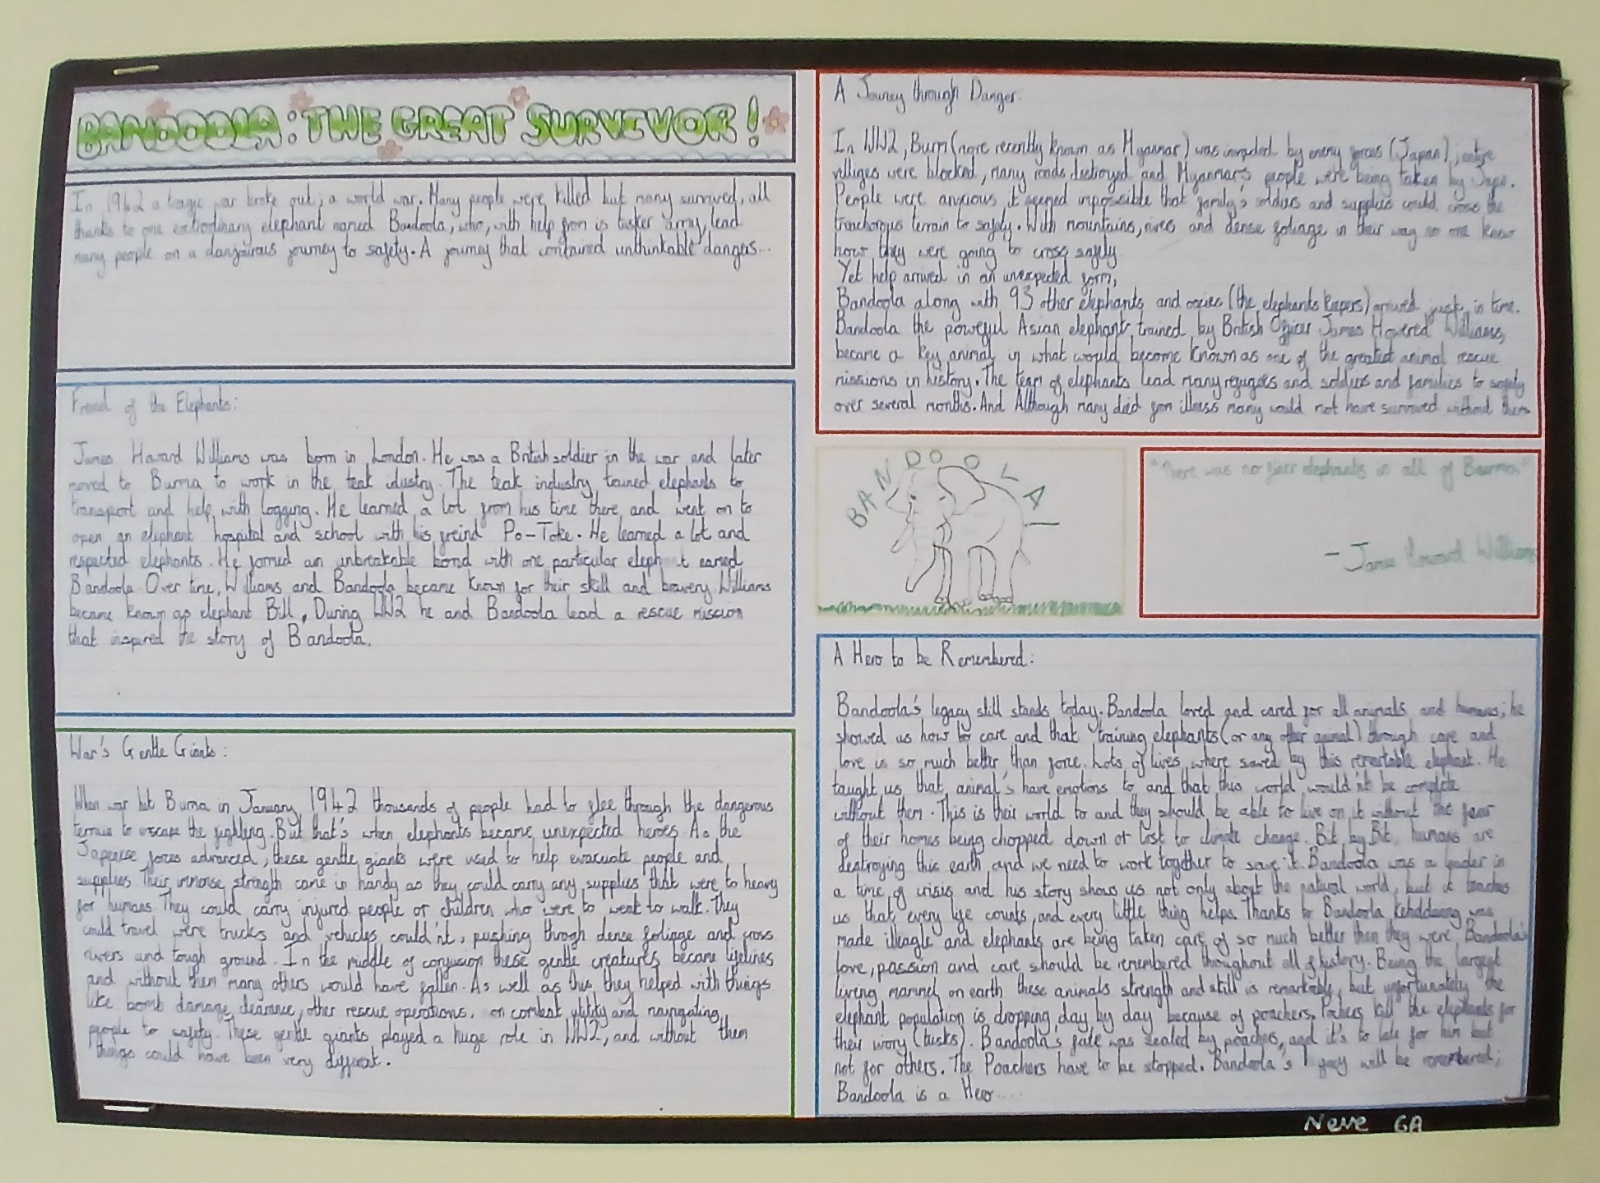 BANDOOLA: THE GREAT SURVIVOR!
In 1942 a tragic war broke out, a world war. Many people were killed but many survived, all
thanks to one extrodinary elephant named Bandoola, who, with help from is tusker army, lead
many people on a dangourous journey to safety. A journey that contained unthinkable dangers...
Freind of the Elephants:
James Howard Williams was born in London. He was a British soldier in the war and later
moved to Burma to work in the teak idustry. The teak industry trained elephants to
transport and help with logging. He learned a lot from his time there, and went on to
open an elephant hospital and school with his freind Po-Toke. He learned a lot and
respected elephants. He formed an unbreakable bond with one particular eleph t named
Bandoola. Over time, Williams and Bandoola became known for their skill and bravery. Williams
became known as elephant Bill. During WW2 he and Bandoola lead a rescue mission
that inspired the story of Bandoola.
War's Gentle Giants:
When war hit Burma in January 1942 thousands of people had to flee through the dangerous
to escape the fighting. But that's when elephants became unexpected heroes. As the
Japenese forces advanced, these gentle giants were used to help evacuate people and
supplies. Their immense strength came in handy as they could carry any supplies that were to heavy
for humans. They could carry injured people or children who were to weak to walk. They
could travel were trucks and vehicles could'nt, pushing through dense foliage and cross
rivers and tough ground. In the middle of confusion these gentle creatures became lifelines
and without them many others would have fallen. As well as this, they helped with things
like bomb damage, clearance, other rescue operations, on combat utility and navigating
people to safety. These gentle giants played a huge role in WW2, and without them
things could have been very different.
A Journey through Danger.
In WW2, Burm (more recently known as Myanmar) was invaded by enemy forces (Japan), entire
villiges were blocked, many roads destroyed and Myanmar's people were being taken by
People were anxious, it seemed impossible that family's soldies and supplies could cross the
terrain to safety. With mountains, rivers and dense foliage in their way no one knew
how they were going to cross safely.
Yet help arrived in an unexpected form,
Bandoola along with 93 other elephants and oozies (the elephants keepers) arrived just in time.
Bandoola the powerful Asian elephant trained by British Officer James Howered Williams,
became a key animal in what would become known as one of the greatest animal rescue
missions in history. The team of elephants lead many refugees and soldiers and families to safety
over several months. And Although many died from illness many would not have survived without them
BANDOOLA
"There was no finer elephants in all of Burma"
- James Howard Williams
A Hero to be Remembered:
Bandoola's legacy still stands today. Bandoola loved and cared for all animals and humans; he
showed us how to care and that training elephants (or any other animal) through care and
love is so much better than force. Lots of lives where saved by this remarkable elephant. He
taught us that animal's have emotions to and that this world would'nt be complete
without them. This is their world to and they should be able to live on it without the fear
of their homes being chopped down or lost to climate change. Bit by Bit, humans are
destroying this earth and we need to work together to save it. Bandoola was a leader in
a time of crisis and his story shows us not only about the natural world, but it teaches
us that every life counts and every little thing helps. Thanks to Bandoola Kehddaring was
made illeagle and elephants are being taken care of so much better then they were. Bandoola's
love, passion and care should be remembered throughout all of history. Being the largest
living mammel on earth these animals strength and skill is remarkable, but unfortunately the
elephant population is dropping day by day because of poachers. kill the elephants for
their ivory (tusks). Bandoola's fate was sealed by poachers, and it's to late for him but
not for others. The Poachers have to be stopped. Bandoola's will be remembered;
Bandoola is a Hero....
Neve 6A